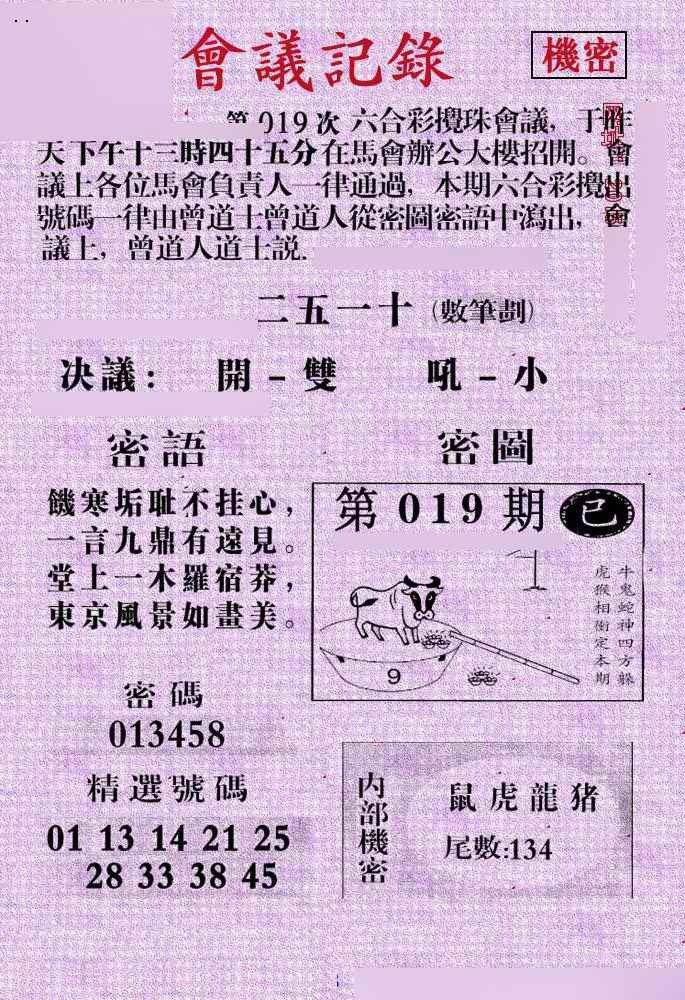 會議記錄
機密
第 019 次 六合彩攪珠會議，于昨
天下午十三時四十五分在馬會辦公大樓招開。會
議上各位馬會負責人一律通過，本期六合彩攪出
號碼一律由曾道士曾道人從密圖密語中瀉出，會
議上，曾道人道士説.
二五一十（數筆劃）
决議： 開－雙 吼－小
密語
饑寒垢耻不挂心，
一言九鼎有遠見。
堂上一木羅宿莽，
東京風景如畫美。
密圖
第 019 期 已
牛鬼蛇神四方躲
虎猴相衝定本期
9
密碼
013458
精選號碼
01 13 14 21 25
28 33 38 45
内部機密
鼠虎龍猪
尾數:134